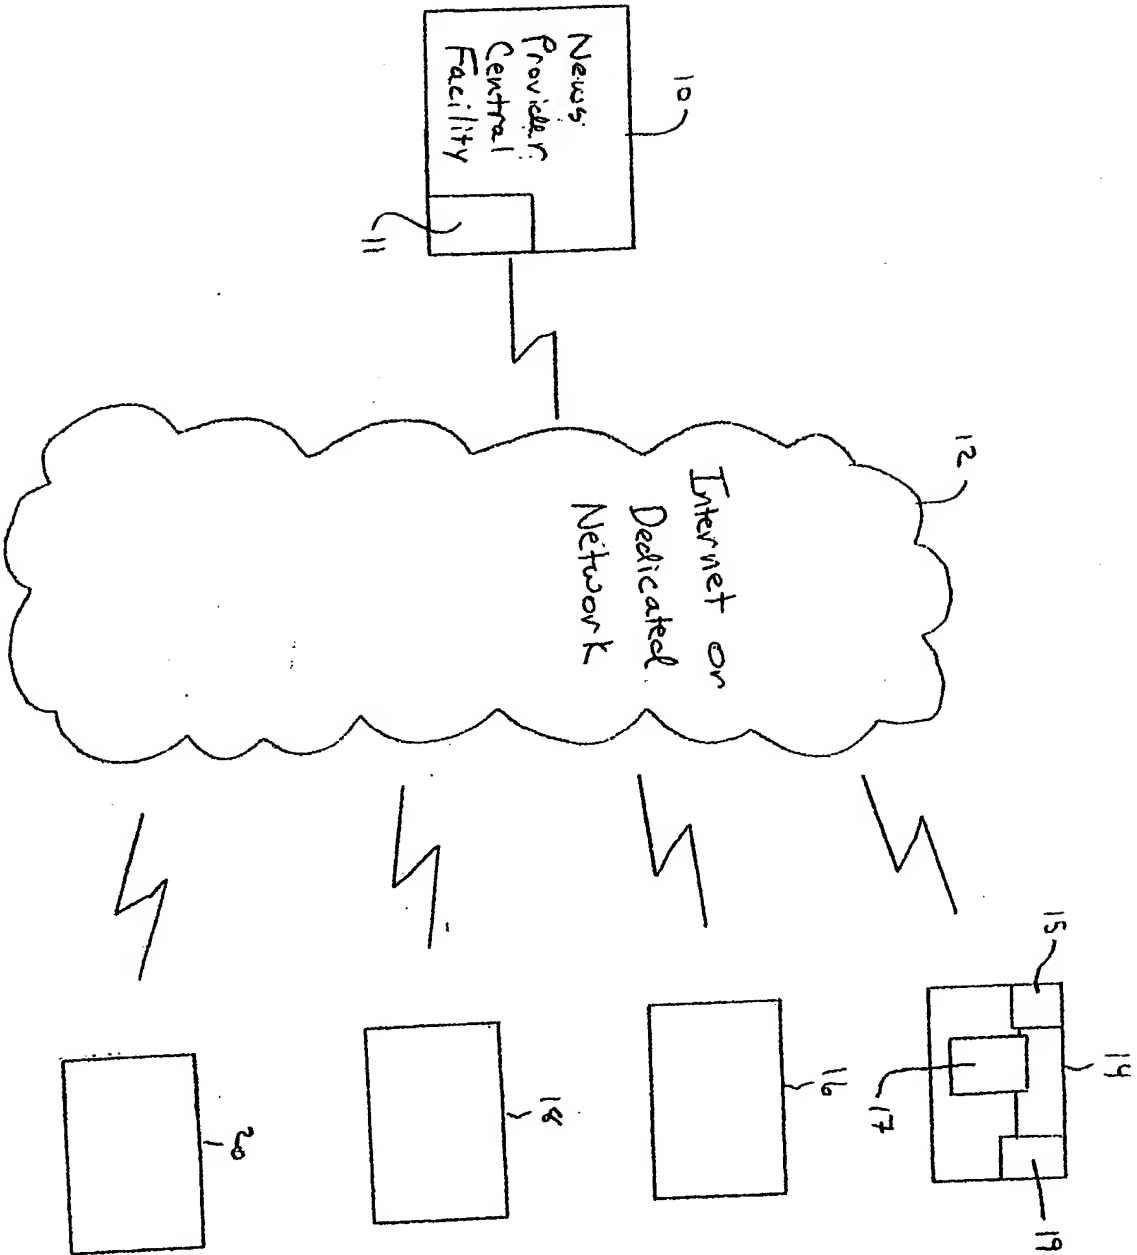 10
News
Provider
Central
Facility
11
12
Internet or
Dedicated
Network
15
14
17
19
16
18
20